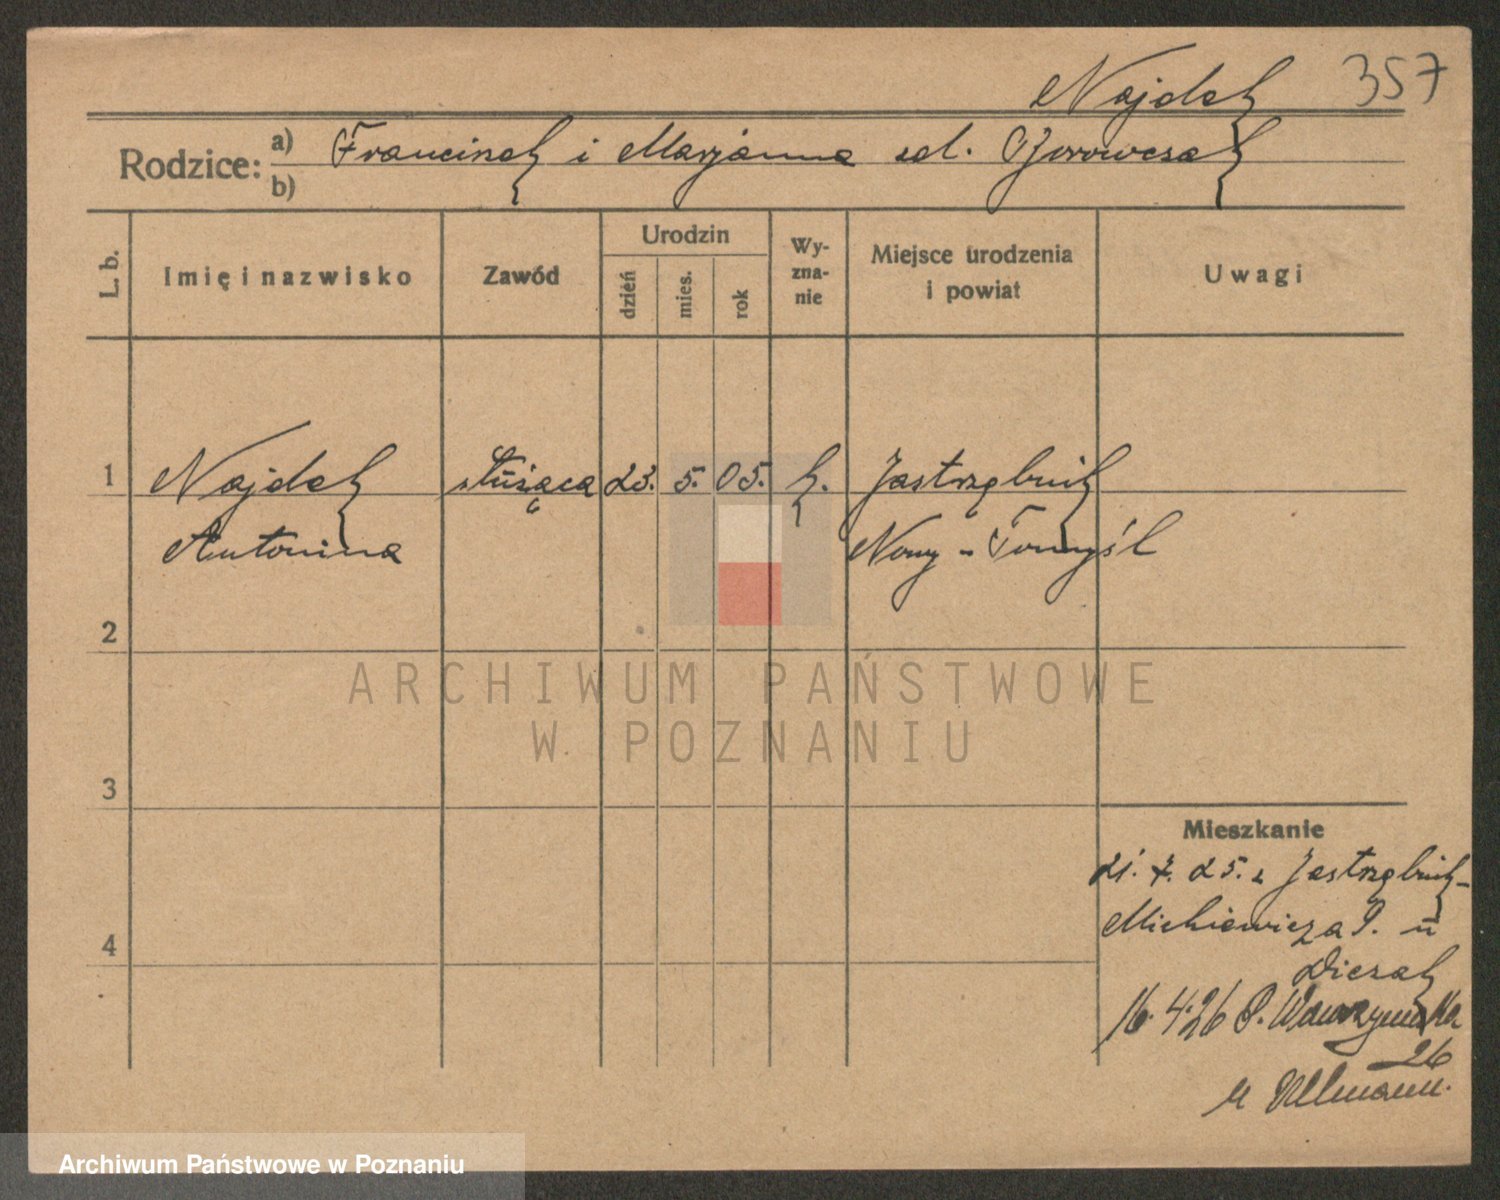 Najdek 357
Rodzice: a) Franciszek i Marjanna
b)
L. b.
Imię i nazwisko
Zawód
Urodzin
dzień
mies.
rok
Wy-
zna-
nie
Miejsce urodzenia
i powiat
Uwagi
1 Najdek służąca 23. 5. 05. k. Jastrzębnik
Antonina Nowy-Tomyśl
2
ARCHIWUM PAŃSTWOWE
W POZNANIU
3
Mieszkanie
21. 7. 25. z Jastrzębnik-
4 Mickiewicza 9. u
16. 4. 26 P. Wawrzyniaka
26
u Ullmann.
Archiwum Państwowe w Poznaniu